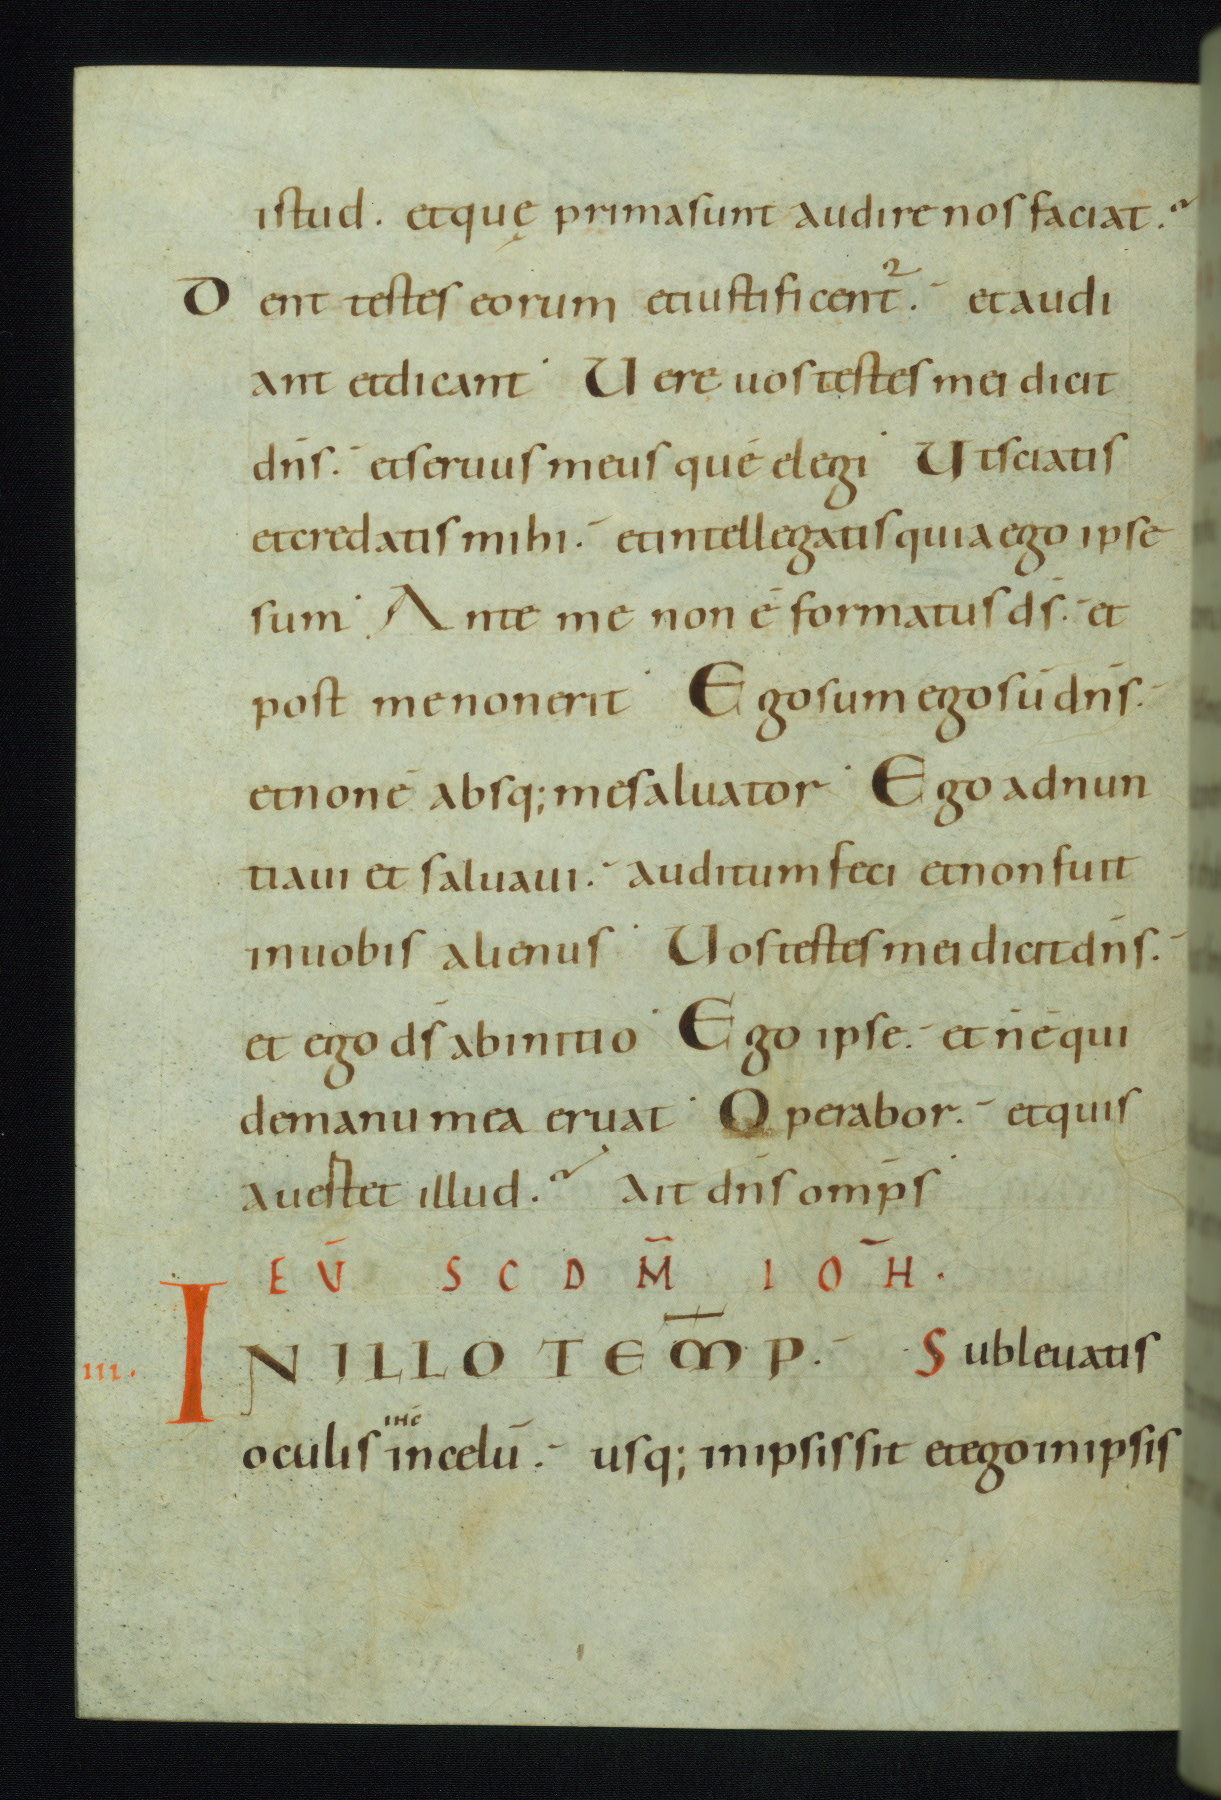 istud. et quę prima sunt audire nos faciat.
Dent testes eorum et iustificentᷣ. et audi
ant et dicant· Uere uos testes mei dicit
dn̄s. et seruus meus quē elegi· Ut sciatis
et credatis mihi. et intellegatis quia ego ipse
sum· Ante me non ē formatus d̄s. et
post me non erit· Ego sum ego sū dn̄s.
et non ē absq; me saluator· Ego adnun
tiaui et saluaui. auditum feci et non fuit
in uobis alienus· Uos testes mei dicit dn̄s.
et ego d̄s ab initio· Ego ipse. et n̄ ē qui
de manu mea eruat· Operabor. et quis
auestet illud. Ait dn̄s omp̄s·
EŪ SCD M̄ IOH̄.
III. IN ILLO TEM̄P. Subleuatis
oculis ihc̄ in celū. usq; in ipsis sit et ego in ipsis